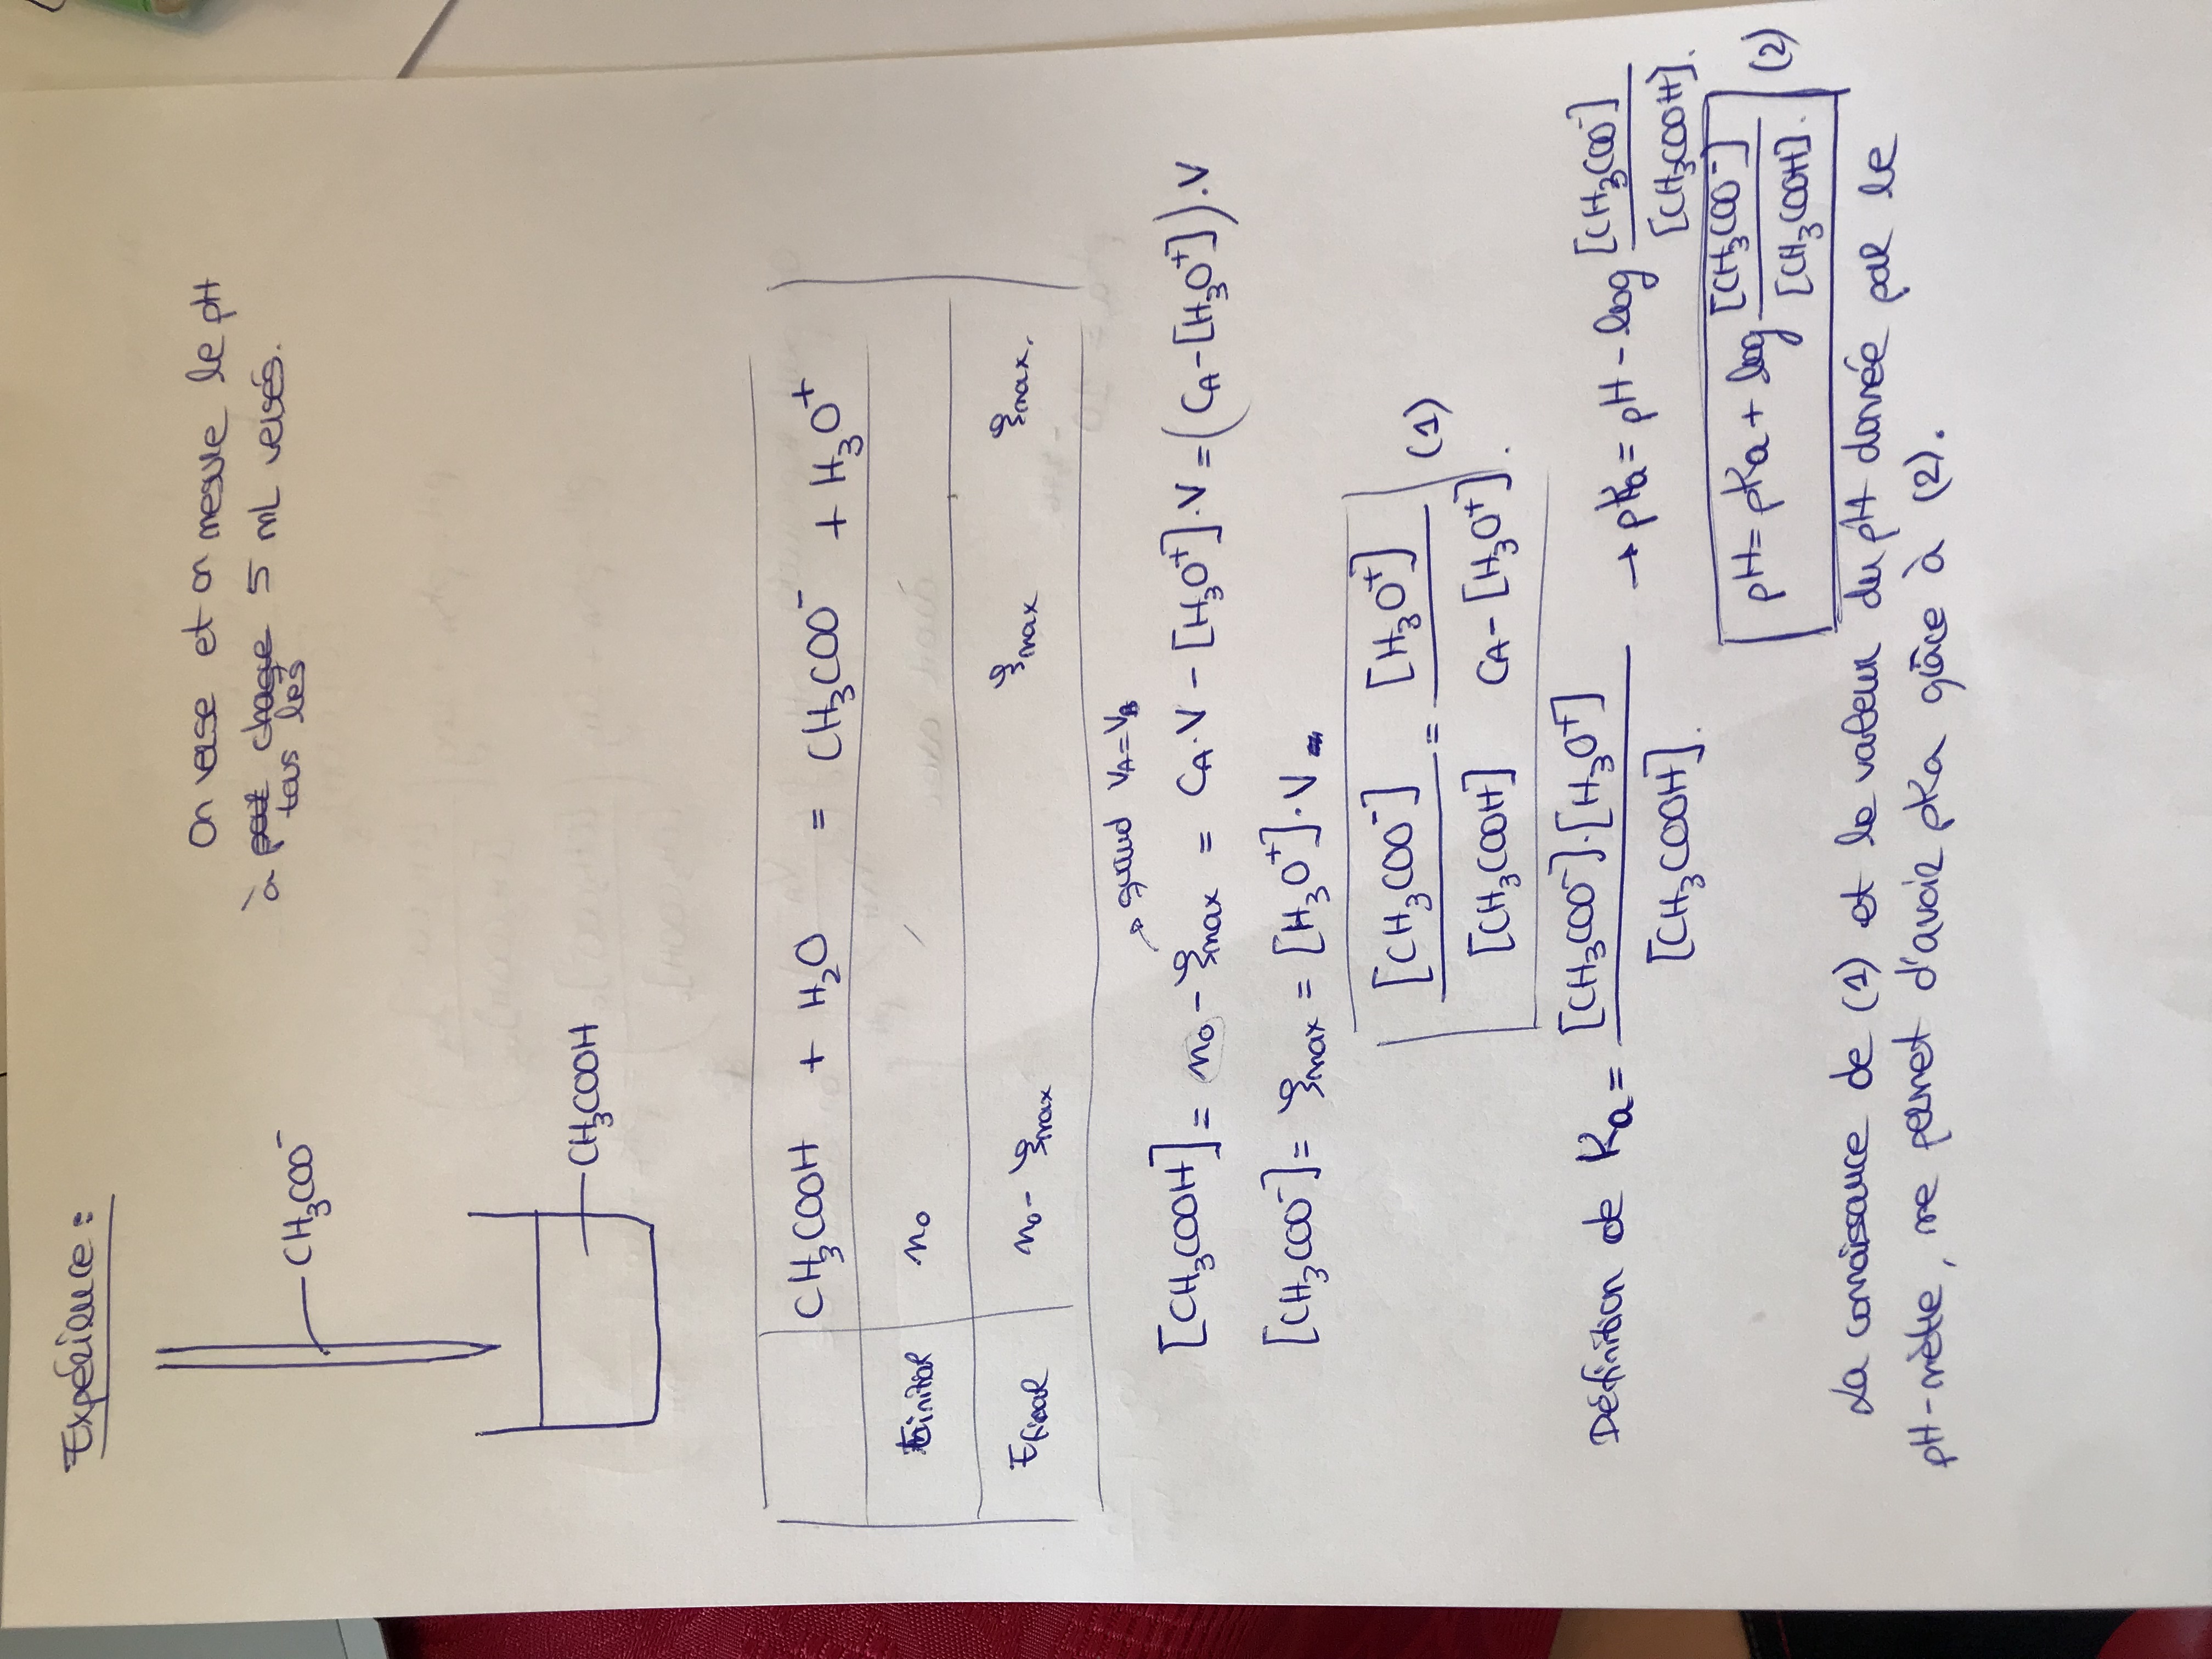 Expérience :
On verse et on mesure le pH
à tous les 5 mL versés.
CH₃COO⁻
CH₃COOH
CH₃COOH + H₂O = CH₃COO⁻ + H₃O⁺
Einitial n₀ /
Efinal n₀ - ξmax ξmax ξmax.
→ quand VA = VB
[CH₃COOH] = n₀ - ξmax = CA·V - [H₃O⁺]·V = (CA - [H₃O⁺])·V
[CH₃COO⁻] = ξmax = [H₃O⁺]·V
[CH₃COO⁻] / [CH₃COOH] = [H₃O⁺] / CA - [H₃O⁺]. (1)
Définition de Ka = [CH₃COO⁻]·[H₃O⁺] / [CH₃COOH]. → pKa = pH - log [CH₃COO⁻] / [CH₃COOH].
pH = pKa + log [CH₃COO⁻] / [CH₃COOH]. (2)
La connaissance de (1) et le valeur du pH donnée par le
pH-mètre, me permet d'avoir pKa grâce à (2).